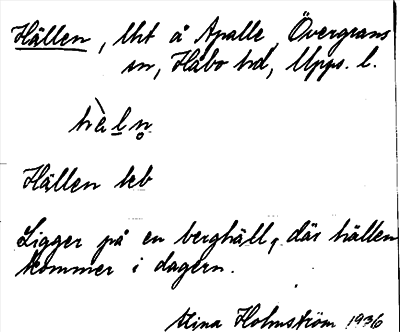 Hällen, lht å Apalle, Övergrans
sn, Håbo hd, Upps. l.
hèln
Hällen heb
Ligger på en berghäll, där hällen
kommer i dagern.
Stina Holmström 1936